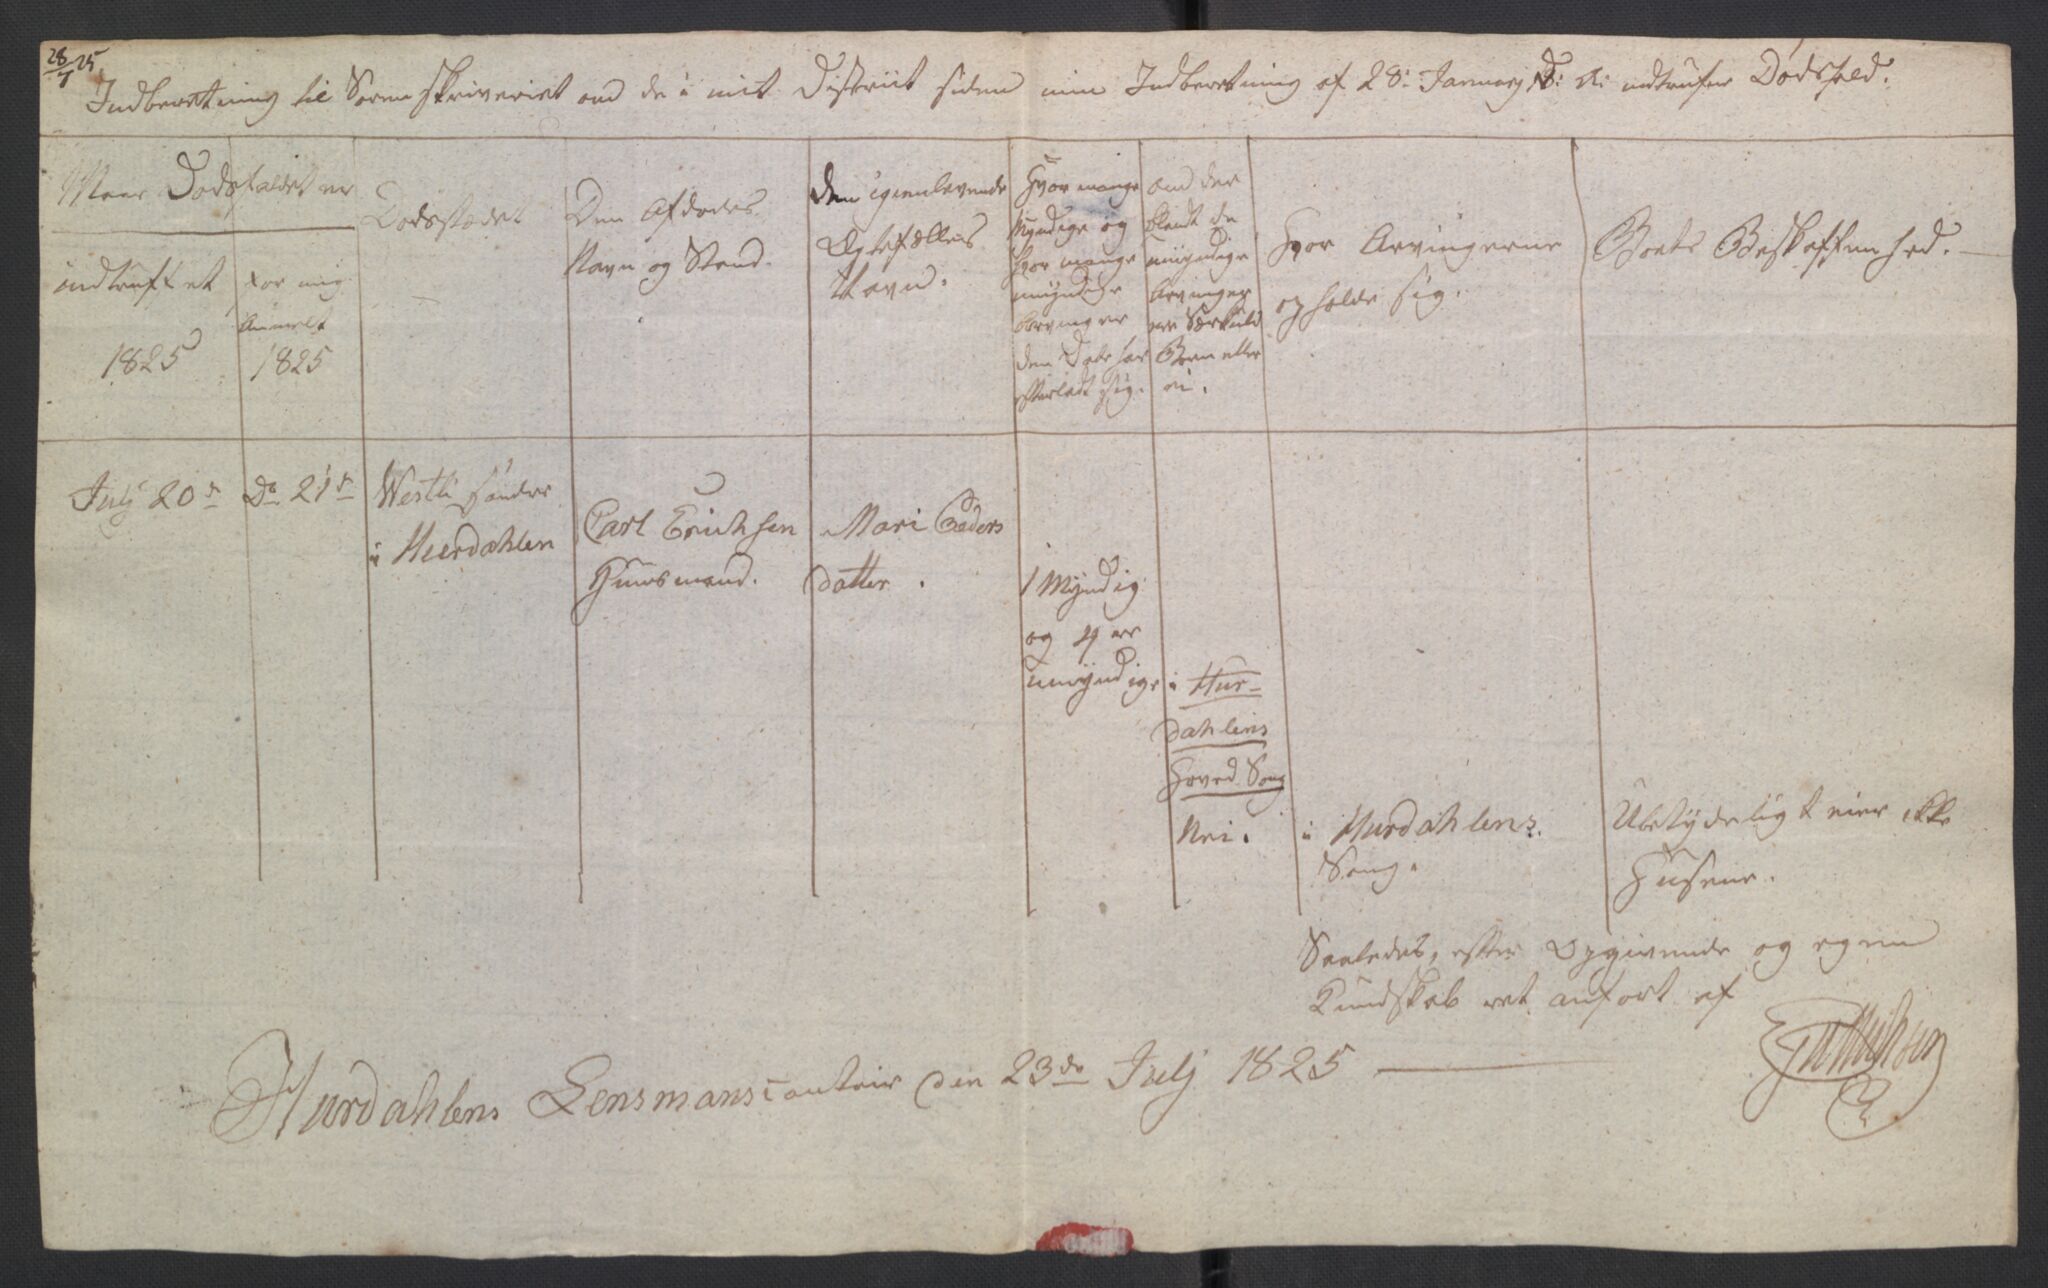 28/7 25
Indberetning til Sorenskriveriet om de i mit Districkt siden min Indberetning af 28: Januarj d: A: indtrufne Dødsfald.
Naar Dødsfaldet er
indtruffet
1825
for mig
Anmelt
1825
Dødsstædet
Den Afdødes
Navn og Stand.
Den igienlevende
Ægtefælles
Navn.
Hvor mange
Myndige og
hvor mange
umyndige
Arvinger
den Døde har
efterladt sig.
om der
blandt de
umyndige
Arvinger
ere Særkuld
Børn eller
ei.
Hvor Arvingerne
opholde sig.
Boets Beskaffenhed.
Julj 20de
Do 21de
Westli søndre
i Hurdahlen
Carl Erichsen
Huusmand.
Mari Peders
datter.
1 Myndig
og 4 er
umyndige
i Hur-
dahlens
Hoved Sogn
Nei.
i Hurdahlens
Sogn.
Ubetydeligt eier ikke
Husene.
Saaledes, efter Opgivende og egen
Kundskab ret anført af
Hurdahlens Lensmanscontoir den 23de Julj 1825